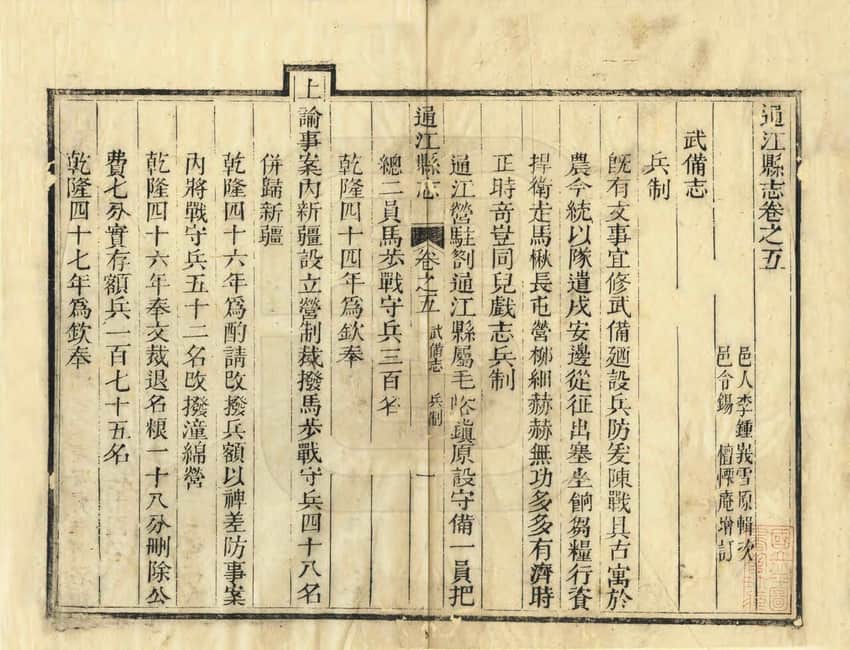 通江縣志卷之五
邑人李鍾峩雪原輯次
邑令錫 檀慄庵增訂
武備志
兵制
旣有文事宜修武備廼設兵防爰陳戰具古寓於
農今統以隊遣戍安邊從征出塞坐餉芻糧行資
捍衛走馬楸長屯營柳細赫赫無功多多有濟時
正時奇豈同兒戲志兵制
通江營駐劄通江縣屬毛峪鎭原設守備一員把
通江縣志 卷之五 武備志 兵制 一
總二員馬步戰守兵三百名
乾隆四十四年爲欽奉
上諭事案內新疆設立營制裁撥馬步戰守兵四十八名
併歸新疆
乾隆四十六年爲酌請改撥兵額以禆差防事案
內將戰守兵五十二名改撥潼綿營
乾隆四十六年奉文裁退名糧一十八分刪除公
費七分實存額兵一百七十五名
乾隆四十七年爲欽奉